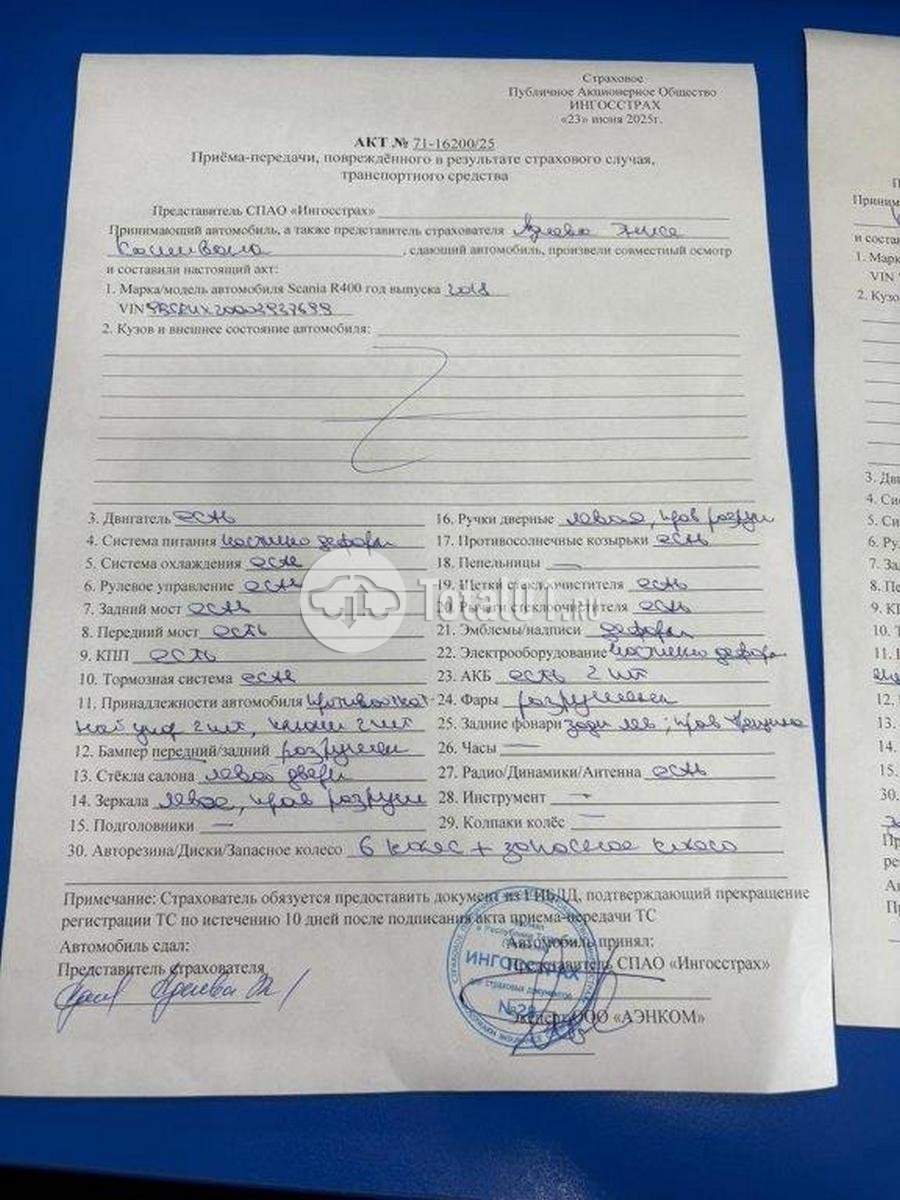 Страховое
Публичное Акционерное Общество
ИНГОССТРАХ
«23» июня 2025г.
АКТ № 71-16200/25
Приёма-передачи, повреждённого в результате страхового случая,
транспортного средства
Представитель СПАО «Ингосстрах»
Принимающий автомобиль, а также представитель страхователя
, сдающий автомобиль, произвели совместный осмотр
и составили настоящий акт:
1. Марка/модель автомобиля Scania R400 год выпуска 2018
VIN
2. Кузов и внешнее состояние автомобиля:
3. Двигатель есть
4. Система питания частично деформ
5. Система охлаждения есть
6. Рулевое управление есть
7. Задний мост есть
8. Передний мост есть
9. КПП есть
10. Тормозная система есть
11. Принадлежности автомобиля противооткат
ключи 2 шт
12. Бампер передний/задний разрушен
13. Стёкла салона левой двери
14. Зеркала левое, прав разруш
15. Подголовники —
16. Ручки дверные левая, прав разруш
17. Противосолнечные козырьки есть
18. Пепельницы —
19. Щетки стеклоочистителя есть
20. Рычаги стеклоочистителя есть
21. Эмблемы/надписи деформ
22. Электрооборудование частично деформ
23. АКБ есть 2 шт
24. Фары разрушены
25. Задние фонари задн лев; прав трещина
26. Часы —
27. Радио/Динамики/Антенна есть
28. Инструмент —
29. Колпаки колёс —
30. Авторезина/Диски/Запасное колесо 6 колес + запасное колесо
Примечание: Страхователь обязуется предоставить документ из ГИБДД, подтверждающий прекращение
регистрации ТС по истечению 10 дней после подписания акта приема-передачи ТС
Автомобиль сдал:
Представитель страхователя
Автомобиль принял:
Представитель СПАО «Ингосстрах»
Эксперт ООО «АЭНКОМ»
ИНГОССТРАХ
Для страховых документов
№28
Total01.ru